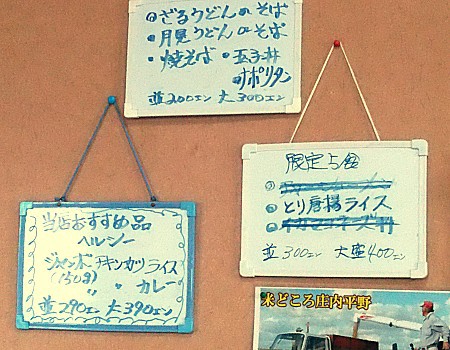 ◎ざるうどんのそば
・月見うどんのそば
・焼そば・玉子丼
ナポリタン
並200エン 大300エン
限定5食
とり唐揚ライス
並300エン 大盛400エン
当店おすすめ品
ヘルシー
ジャンボチキンカツライス
(150g) 〃 〃 カレー
並290エン 大390エン
米どころ庄内平野